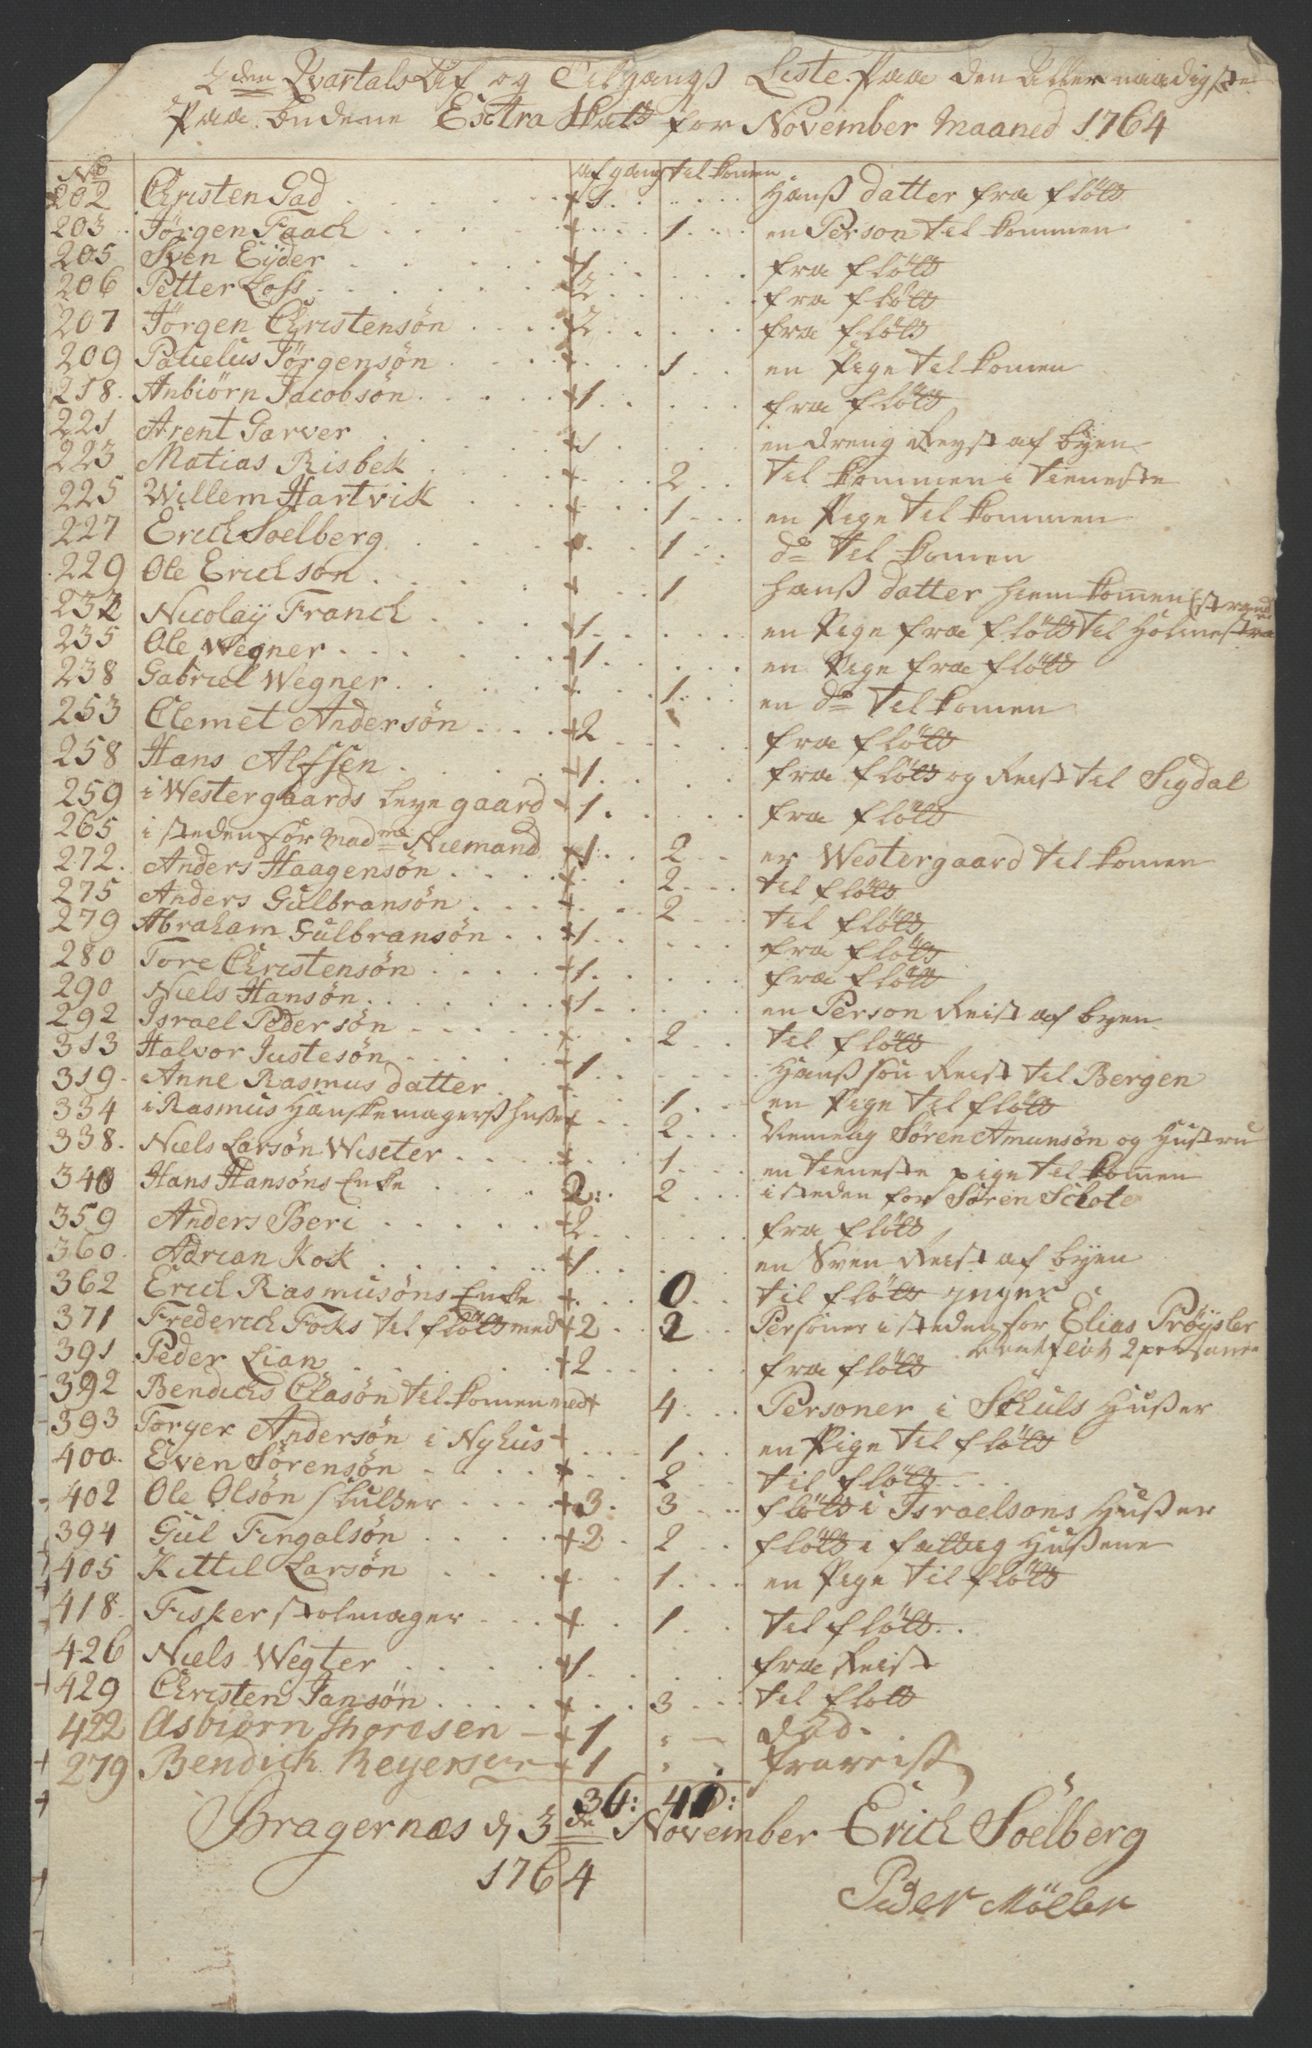 2den Qvartals Af og Tilgangs Liste Paa den Allernaadigste
Paa budene Exstra Skatt for November Maaned 1764
No afgang tilkomen
202 Christen Gad 1 Hanß datter fra fløtt
203 Jørgen Faach 1 en Person tilkommen
205 Sven Eyder 1 fra fløtt
206 Petter Loss 2 fra fløtt
207 Jørgen Christensøn 2 fra fløtt
209 Pauelus Jørgensøn 1 en Pige tilkomen
218 Anbiørn Jacobsøn 1 fra fløtt
221 Arent Garver 1 en dreng Reyst af byen
223 Matias Risbek 2 tilkommen i tieneste
225 Willem Hartvik 1 en Pige tilkommen
227 Erich Soelberg 1 do tilkomen
229 Ole Erichson 1 hanß datter hiemkommen
232 Nicolaÿ Franch 1 en Pige fra fløtt til Holmestrand
235 Ole Wegner 1 en Pige fra fløtt
238 Gabriel Wegner 1 en do tilkomen
253 Clemet Andersøn 2 fra fløtt
258 Hans Alfsen 1 fra fløtt og Reist til Sigdal
259 i Westergaards leyegaard 1 fra fløtt
265 i steden for madme Niemand 1 2 er Westergaard tilkomen
272 Anders Haagensøn 2 til fløtt
275 Anders Gulbransøn 2 til fløtt
279 Abraham Gulbransøn 1 fra fløtt
280 Tore Christensøn 1 fra fløtt
290 Niels Hansøn 1 en Person Reist af byen
292 Israel Pedersøn 2 til fløtt
313 Halvor Justesøn 1 Hanß søn Reist til Bergen
319 Anne Rasmus datter 1 en Pige til fløtt
334 i Rasmus Hanskemagerß huset 2 Nemelig Søren Amunsøn og Hustru
338 Niels Larsøn Wiseter 1 en tieneste pige tilkomen
340 Hans Hansøns Enke 2 2 i steden for Søren Schote
359 Anders Beri 2 fra fløtt
360 Adrian Kok 1 en Sven Reist af byen
362 Erich Rasmusøns Enke 0 til fløtt ingen
371 Frederich Foks til fløtt med 2 2 Personer i steden for Elias Prøysler
udfløt 2 personer
391 Peder Lian 2 fra fløtt
392 Bendichs Clasøn tilkomen med 4 Personer i Skuls Hußer
393 Torger Andersøn i Nyhus 1 en Pige til fløtt
400 Even Sørensøn 2 til fløtt
402 Ole Olsøn skultzer 3 3 fløtt i Israelsons Hußer
394 Gul Fingalsøn 2 2 fløtt i fattig Hußene
405 Kittil Larsøn 1 en Pige til fløtt
418 Fisker stolmager 1 til fløtt
426 Niels Wegter 1 fra Reist
429 Christen Jansøn 3 til fløtt
422 Asbiørn Thoresen 1 død
279 Bendich Reyersen 1 frareist
36: 41:
Bragernæs d 3de November Erich Soelberg
1764
Peder Møller